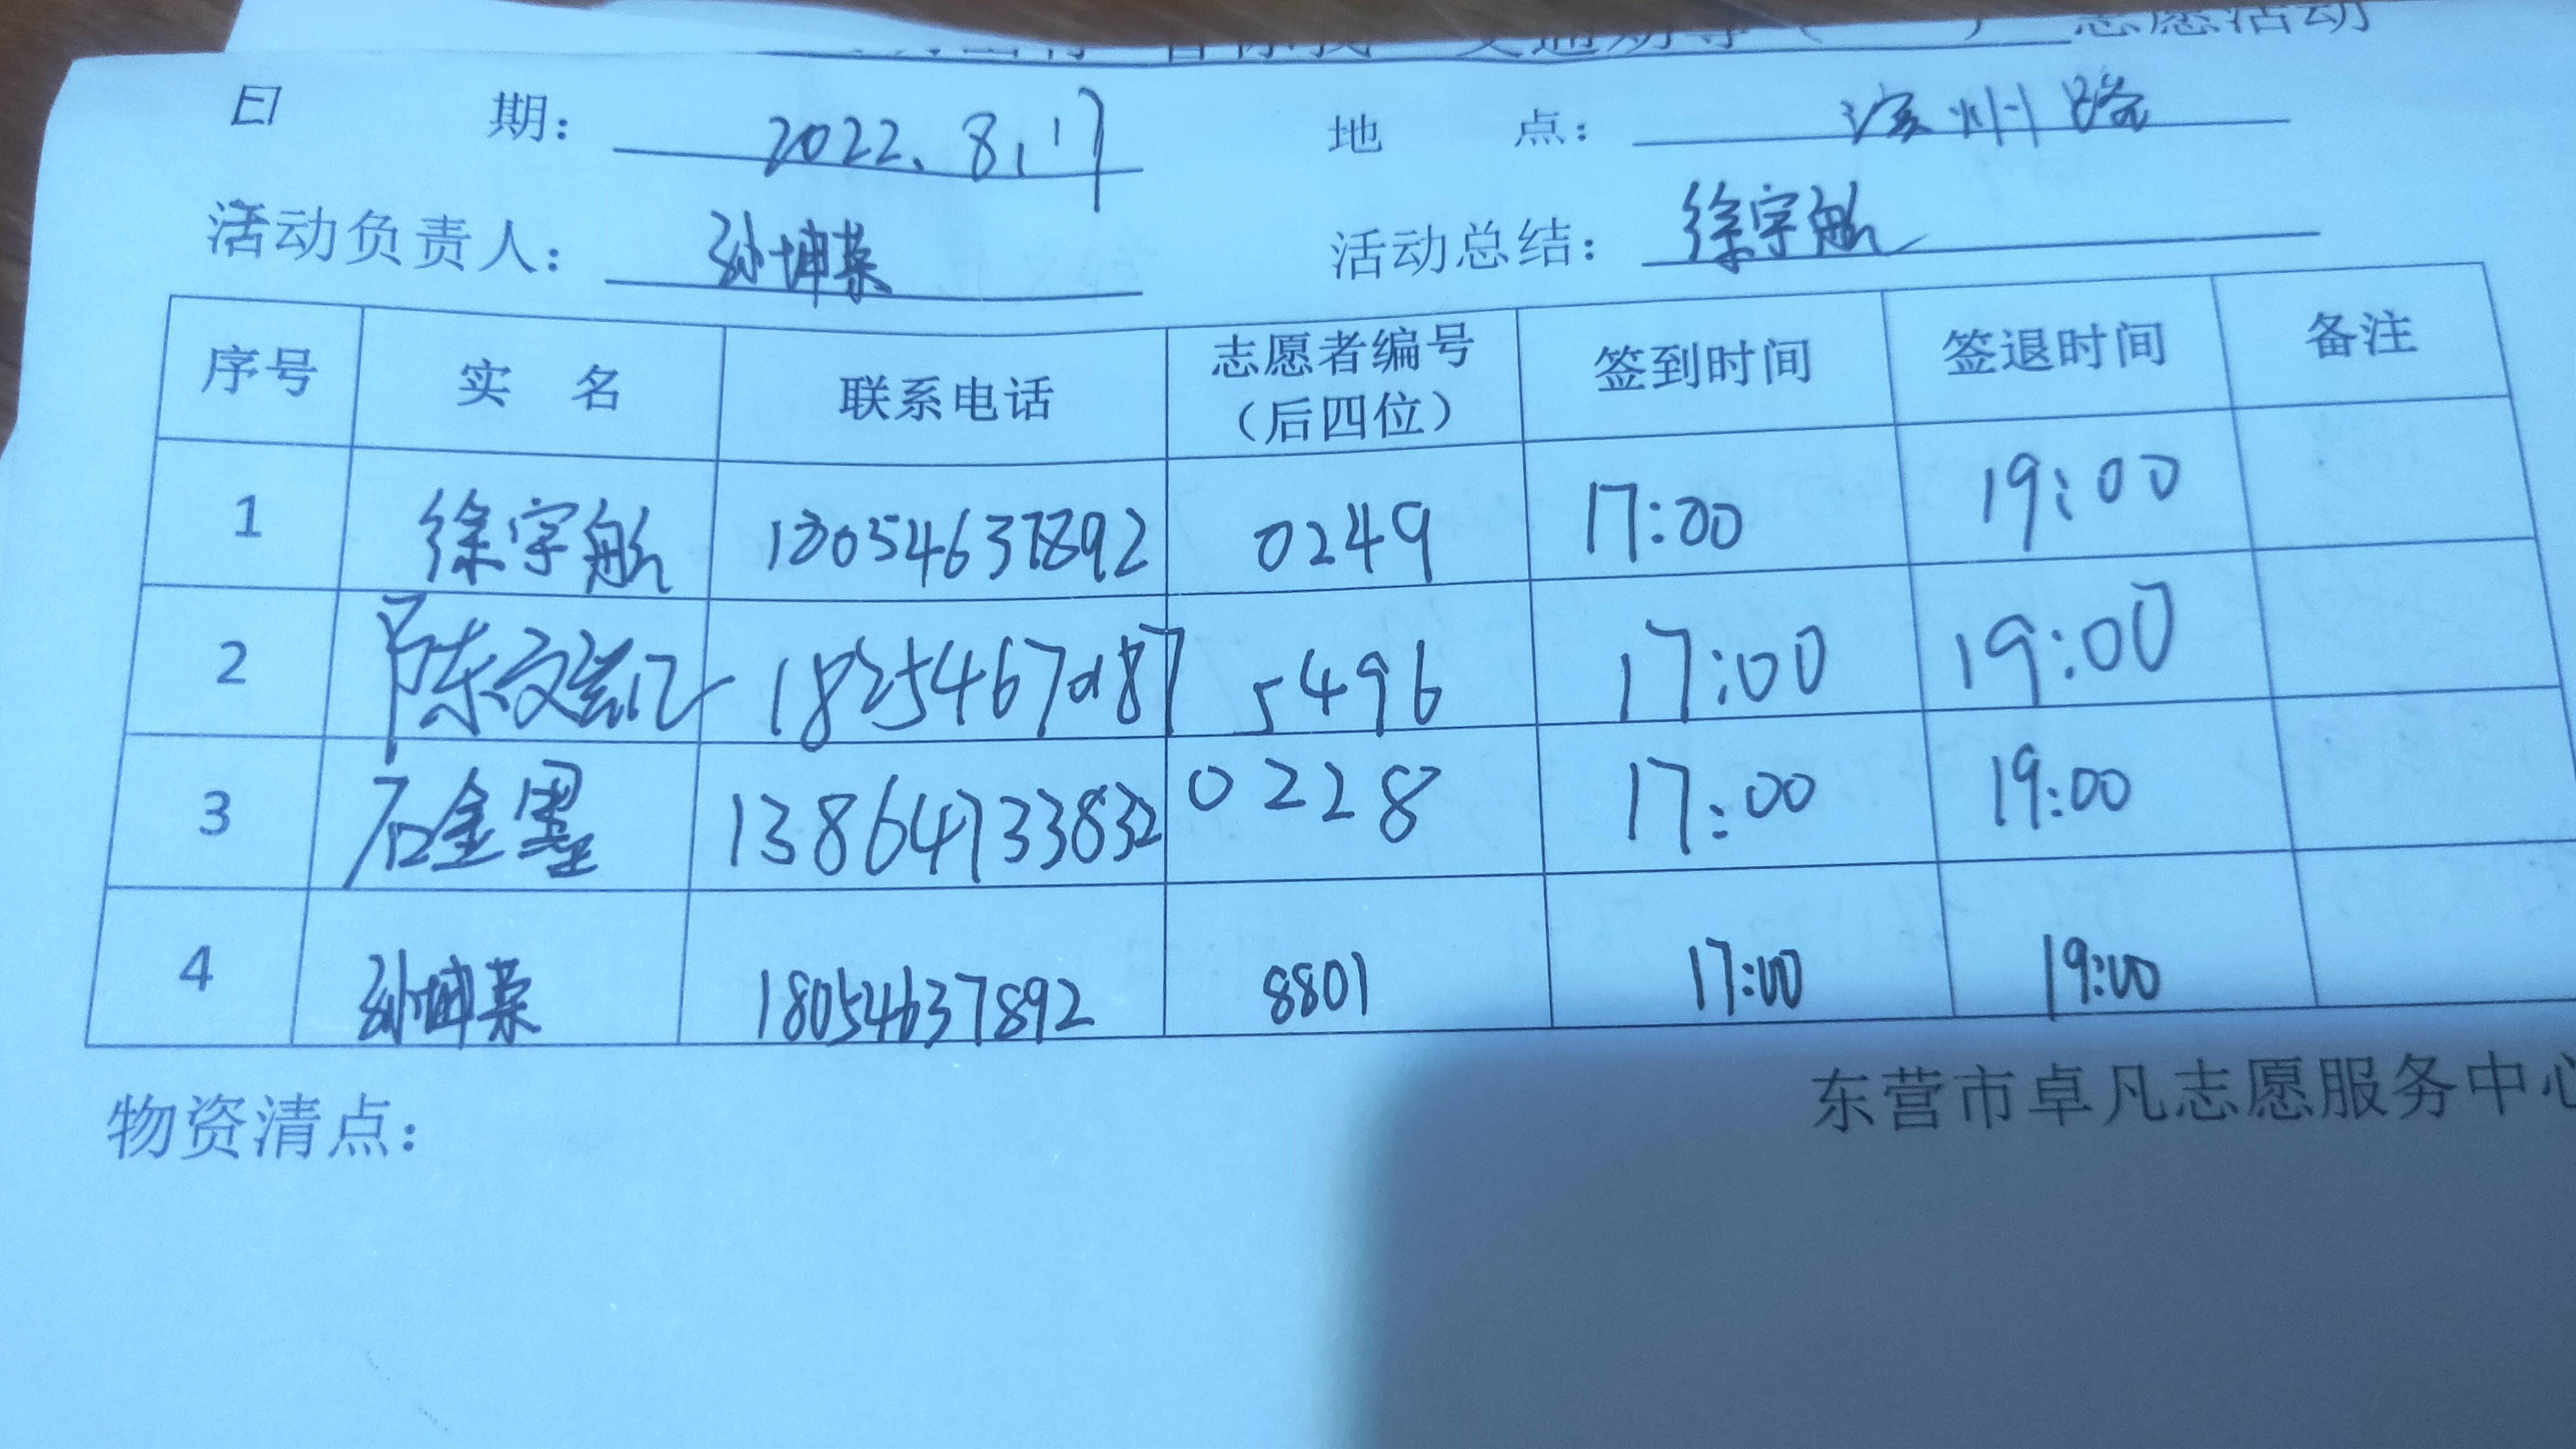 志愿活动
日 期： 2022.8.17 地 点： 滨州路
活动负责人： 孙坤荣 活动总结： 徐宇航
序号 实 名 联系电话 志愿者编号（后四位） 签到时间 签退时间 备注
1 徐宇航 18054637892 0249 17:00 19:00
2 陈文 5496 17:00 19:00
3 石金墨 13864733832 0228 17:00 19:00
4 孙坤荣 18054637892 8801 17:00 19:00
物资清点：
东营市卓凡志愿服务中心